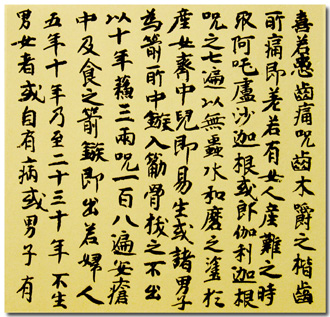 喜若患齒痛呪齒木嚼之楷齒
所痛即差若有女人產難之時
取阿吒盧沙迦根或郎伽利迦根
呪之七遍以無蟲水和磨之塗於
產女齊中兒即易生或諸男子
為箭所中鏃入筋骨拔之不出
以十年穌三兩呪一百八遍安瘡
中及食之箭鏃即出若婦人
五年十年乃至二十三十年不生
男女者或自有病或男子有